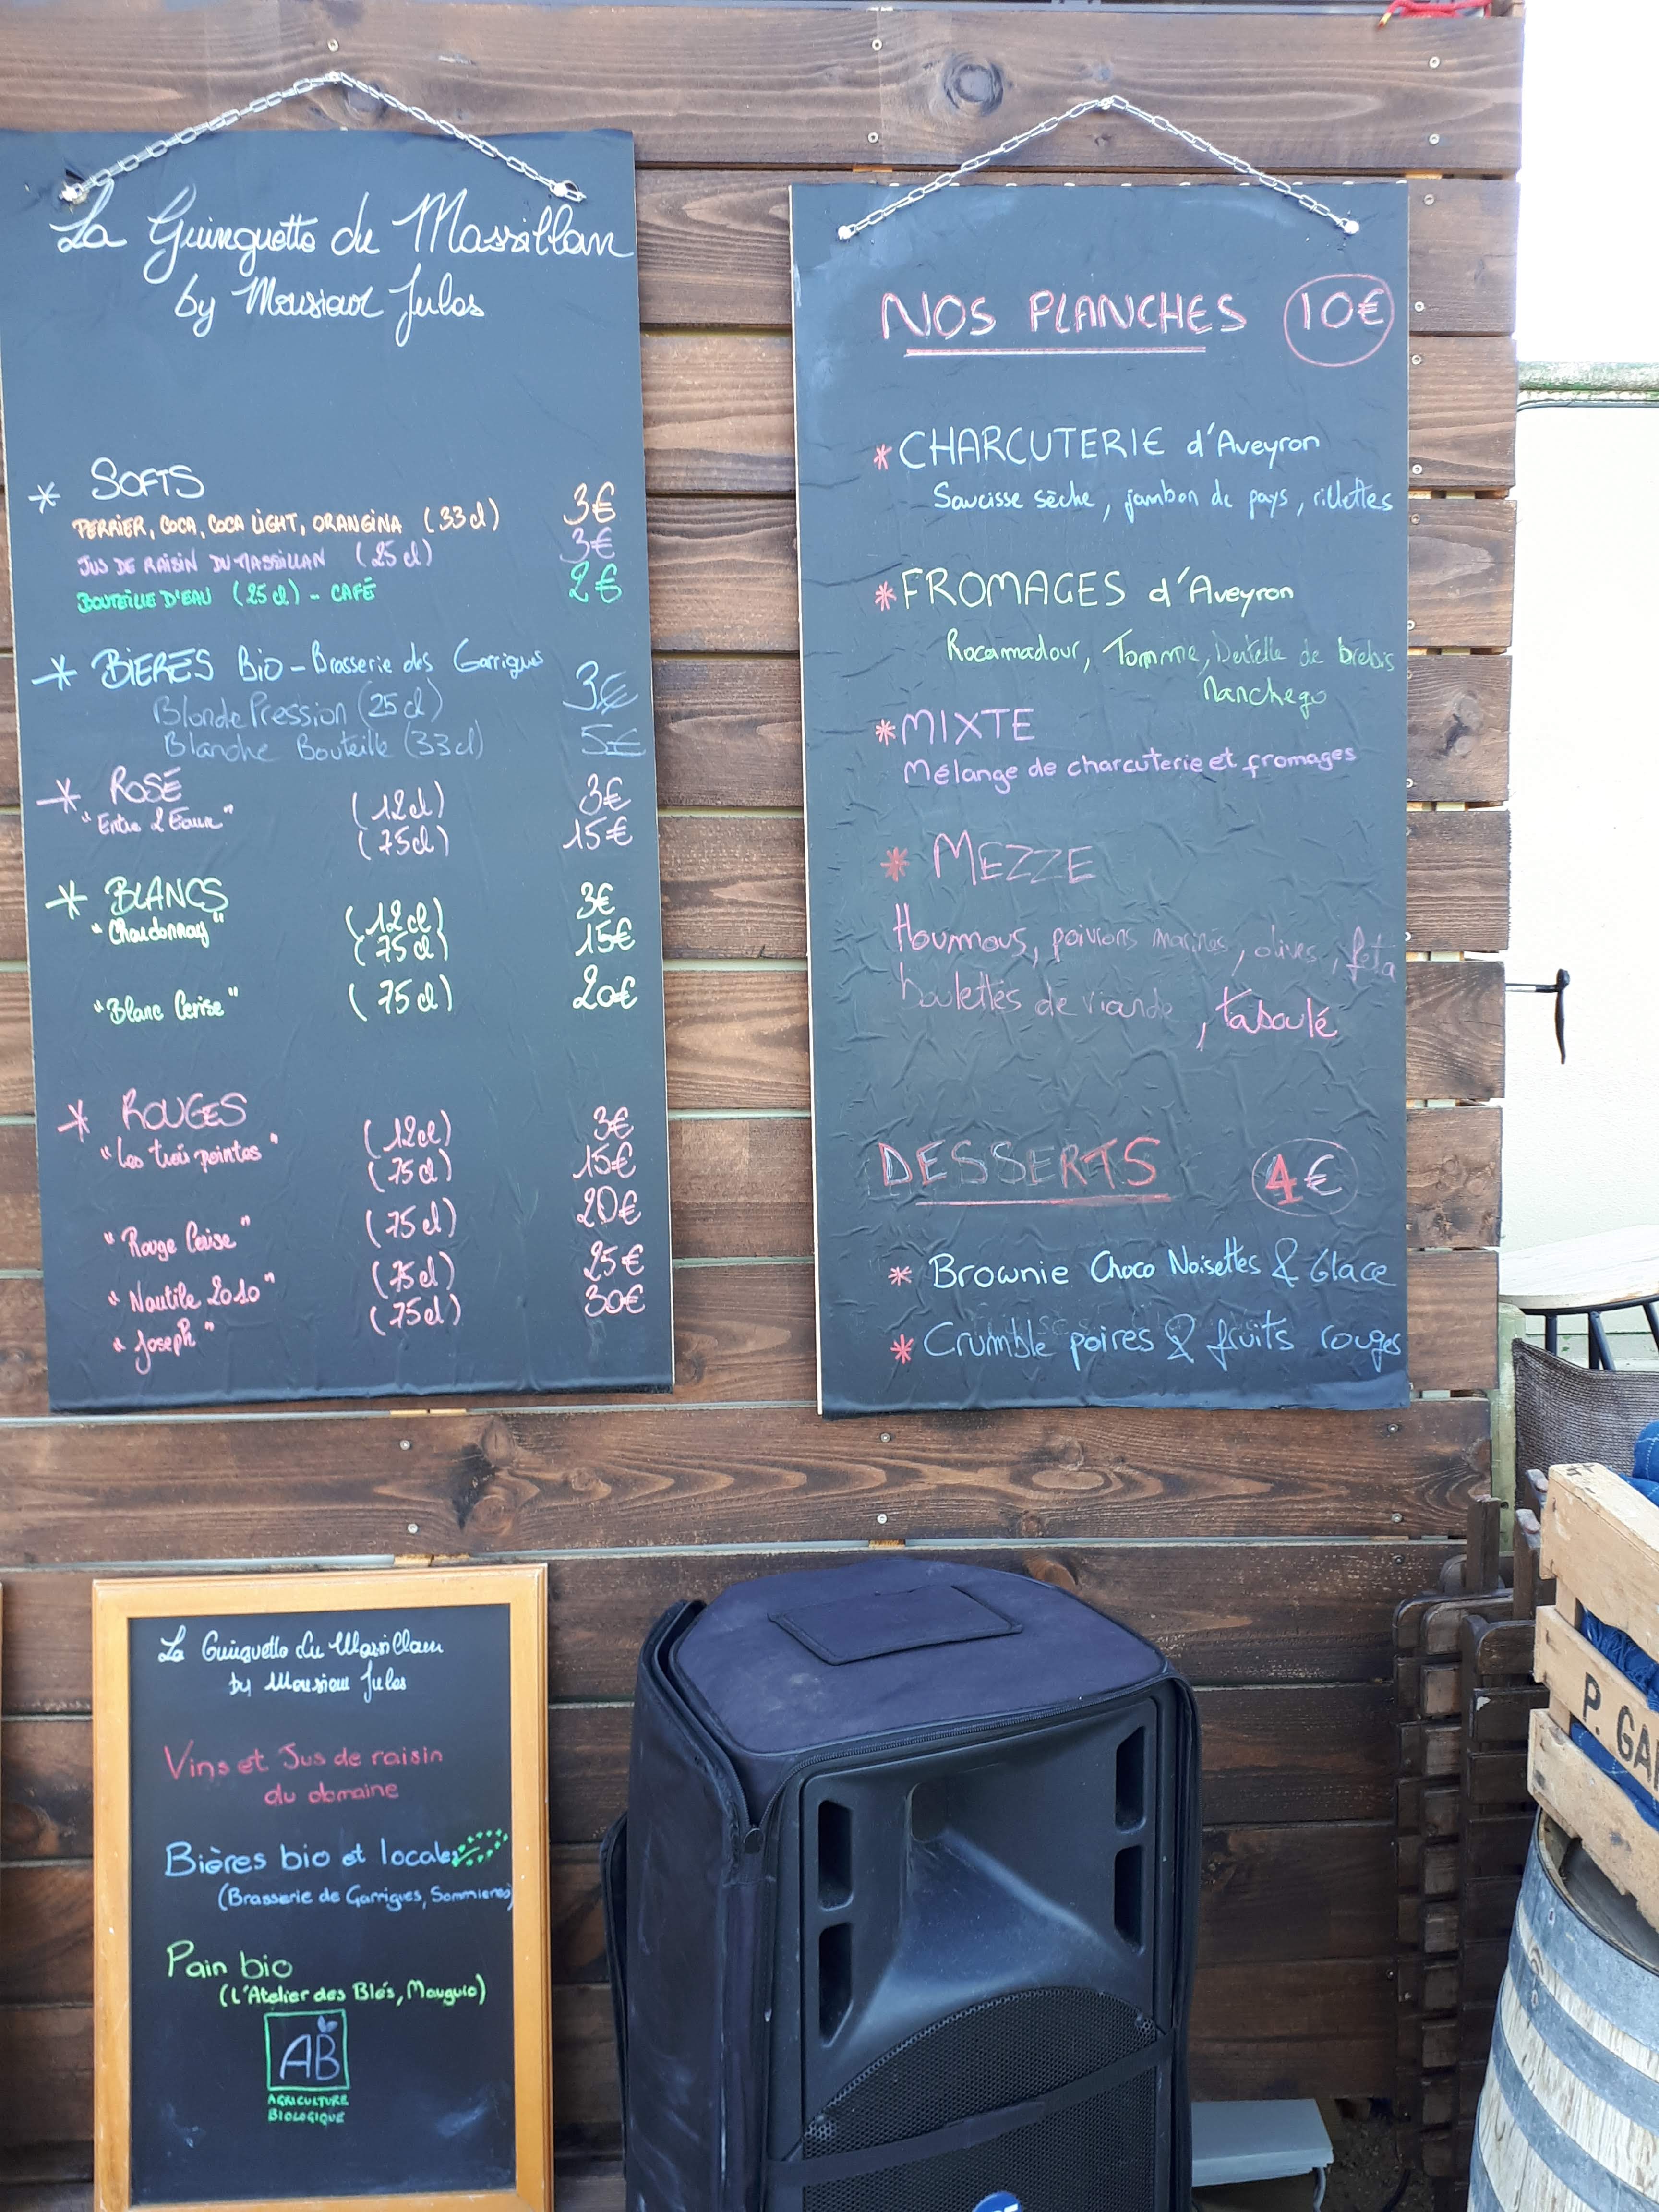 La Guinguette du Massillan
by Monsieur Jules
* SOFTS
PERRIER, COCA, COCA LIGHT, ORANGINA (33cl) 3€
JUS DE RAISIN DU MASSILLAN (25cl) 3€
BOUTEILLE D'EAU (25cl) - CAFÉ 2€
* BIERES Bio - Brasserie des Garrigues
Blonde Pression (25cl) 3€
Blanche Bouteille (33cl) 5€
* ROSÉ (12cl) 3€
"Entre 2 Eaux" (75cl) 15€
* BLANCS (12cl) 3€
"Chardonnay" (75cl) 15€
"Blanc Cerise" (75cl) 20€
* ROUGES (12cl) 3€
"Les trois pointes" (75cl) 15€
"Rouge Cerise" (75cl) 20€
"Nautile 2010" (75cl) 25€
"Joseph" (75cl) 30€
NOS PLANCHES 10€
* CHARCUTERIE d'Aveyron
Saucisse sèche, jambon de pays, rillettes
* FROMAGES d'Aveyron
Rocamadour, Tomme, Dentelle de brebis
Manchego
* MIXTE
Mélange de charcuterie et fromages
* MEZZE
Houmous, poivrons marinés, olives, feta
boulettes de viande, taboulé
DESSERTS 4€
* Brownie Choco Noisettes & Glace
* Crumble poires & fruits rouges
La Guinguette du Massillan
by Monsieur Jules
Vins et Jus de raisin
du domaine
Bières bio et locales
(Brasserie de Garrigues, Sommieres)
Pain bio
(L'Atelier des Blés, Mauguio)
AB
AGRICULTURE
BIOLOGIQUE
P. GA